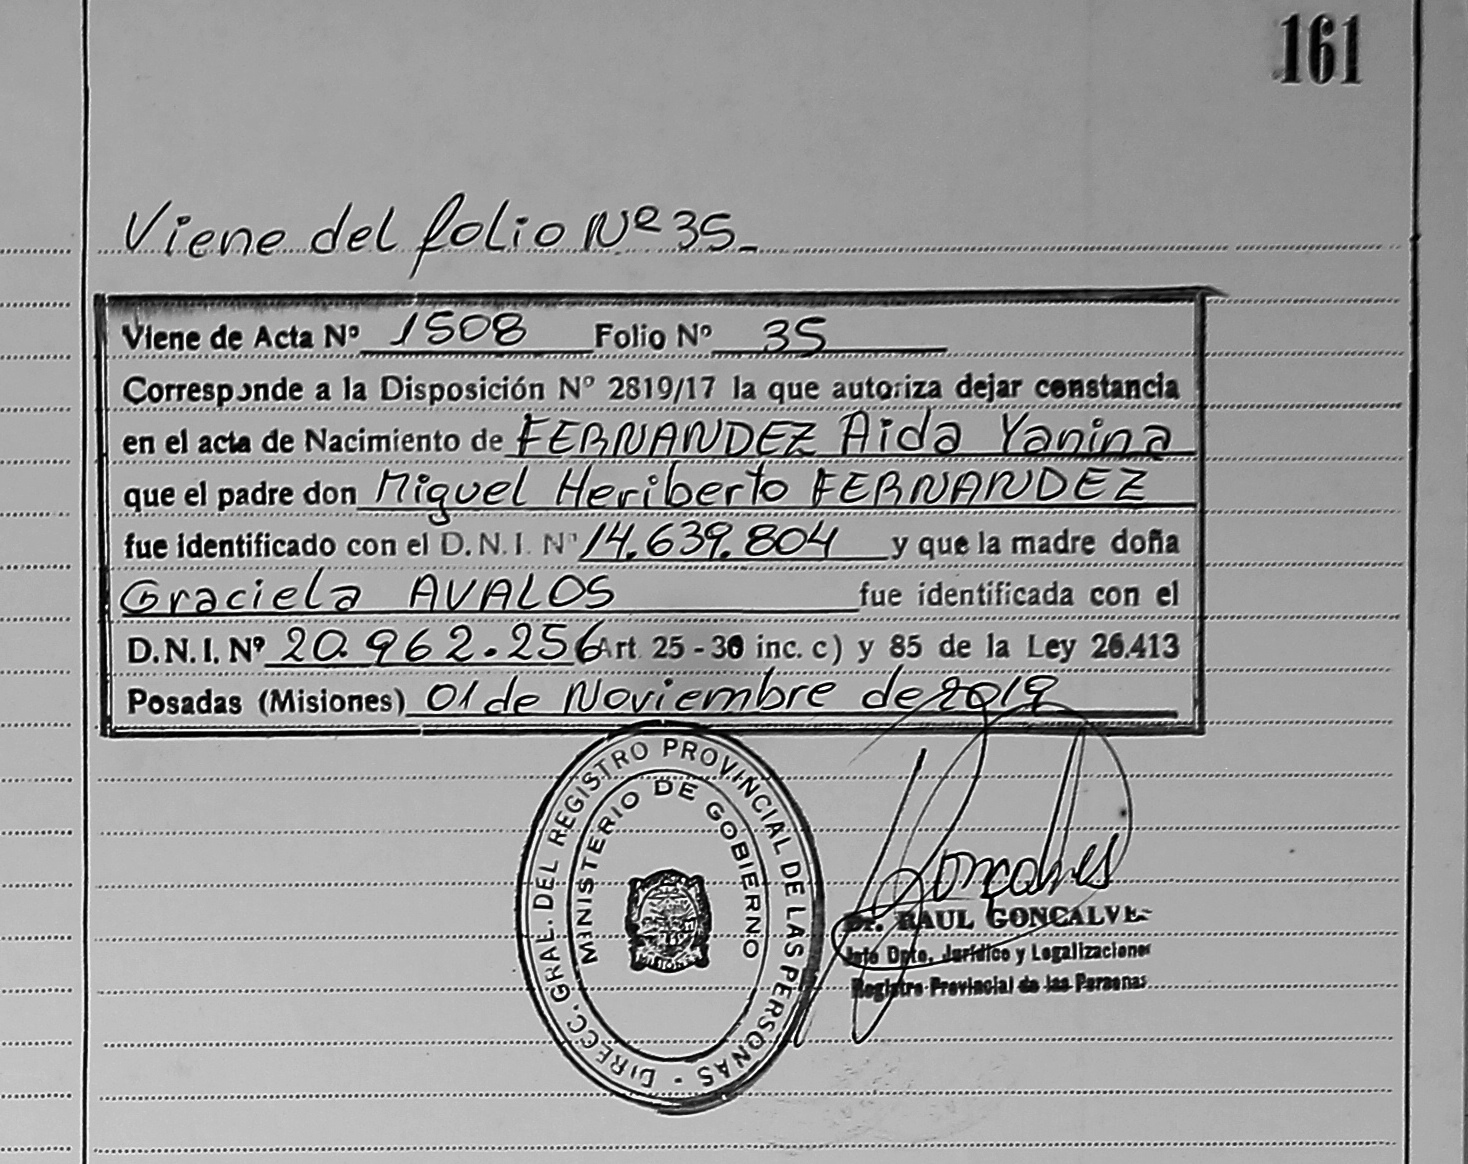 161
Viene del folio Nº 35_
Viene de Acta Nº 1508 Folio Nº 35
Corresponde a la Disposición Nº 2819/17 la que autoriza dejar constancia
en el acta de Nacimiento de FERNANDEZ Aida Yanina
que el padre don Miguel Heriberto FERNANDEZ
fue identificado con el D.N.I. Nº 14.639.804 y que la madre doña
Graciela AVALOS fue identificada con el
D.N.I. Nº 20.962.256 Art. 25 - 30 inc. c) y 85 de la Ley 26.413
Posadas (Misiones) 01 de Noviembre de 2019
DIRECC. GRAL. DEL REGISTRO PROVINCIAL DE LAS PERSONAS -
MINISTERIO DE GOBIERNO
MISIONES
Goncalves
Dr. RAUL GONCALVES
Jefe Dpto. Jurídico y Legalizaciones
Registro Provincial de las Personas